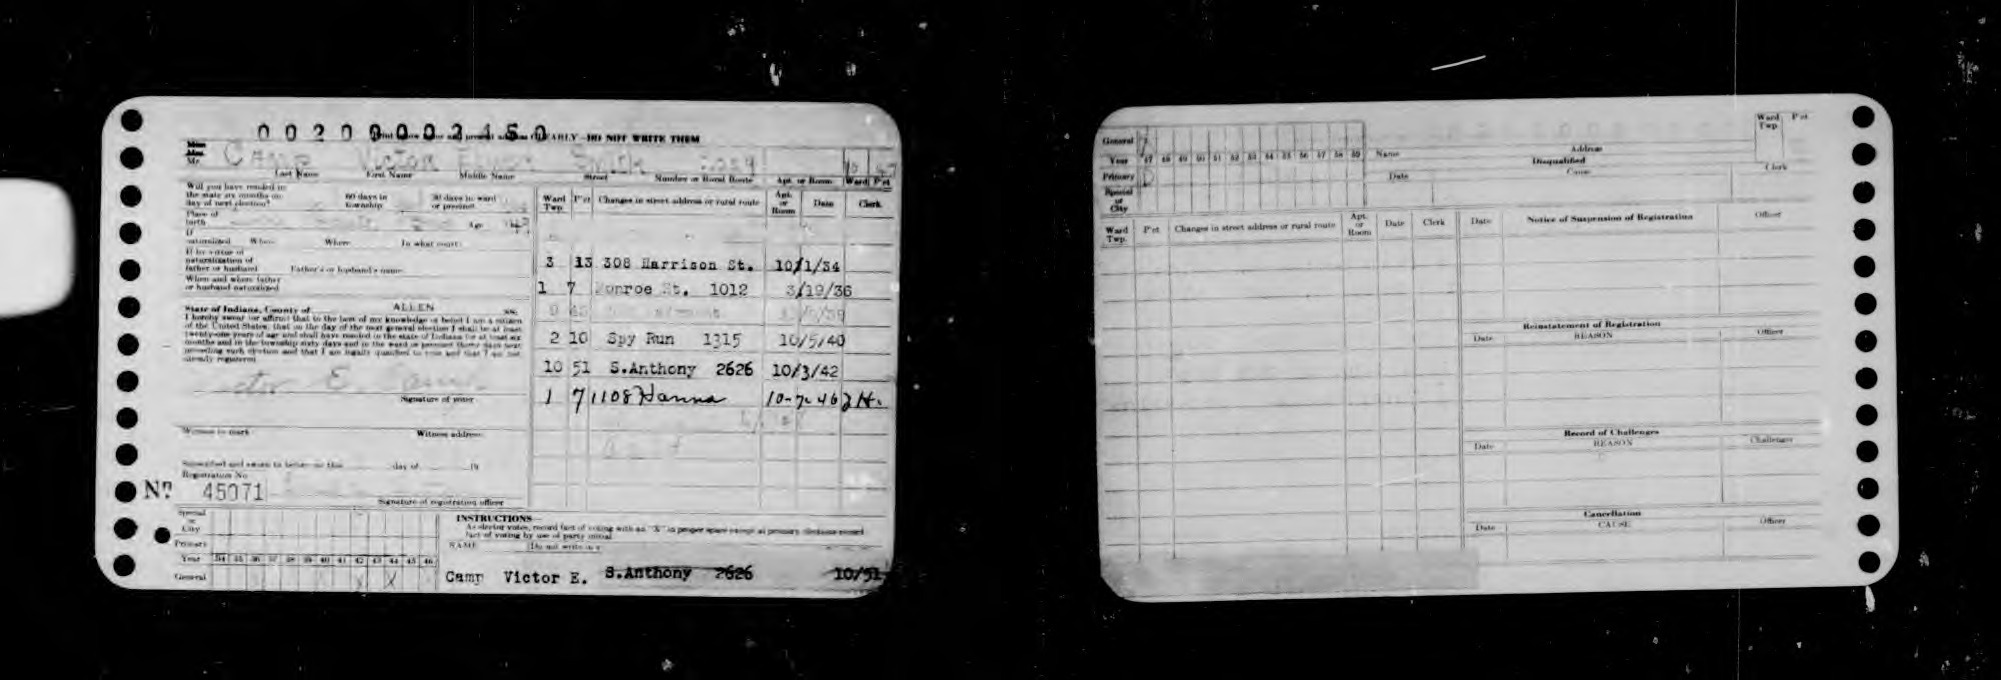 002000002450
CLEARLY—DO NOT WRITE THEM
Miss
Mrs.
Mr. Camp Victor Smith
Last Name First Name Middle Name Street Number or Rural Route Apt. or Room Ward P'ct
Will you have resided in
the state six months on
day of next election?
60 days in
township
30 days in ward
or precinct
Place of
birth
Age
If
naturalized When Where In what court
If by virtue of
naturalization of
father or husband Father's or husband's name
When and where father
or husband naturalized
State of Indiana, County of ALLEN ss:
I hereby swear (or affirm) that to the best of my knowledge or belief I am a citizen
of the United States, that on the day of the next general election I shall be at least
twenty-one years of age and shall have resided in the state of Indiana for at least six
months and in the township sixty days and in the ward or precinct thirty days next
preceding such election and that I am legally qualified to vote and that I am not
already registered.
Victor E. Camp
Signature of voter
Witness to mark Witness address
Subscribed and sworn to before me this day of 19
Registration No.
No. 45071
Signature of registration officer
Ward Twp. P'ct Changes in street address or rural route Apt. or Room Date Clerk
3 13 308 Harrison St. 10/1/34
1 7 Monroe St. 1012 3/19/36
2 10 Spy Run 1315 10/5/40
10 51 S.Anthony 2626 10/3/42
1 7 1108 Hanna 10-7-46 J H.
Special
or
City
Primary
Year 34 35 36 37 38 39 40 41 42 43 44 45 46
General X X
INSTRUCTIONS
As elector votes, record fact of voting with an "X" in proper space except at primary elections record
fact of voting by use of party initial
NAME Do not write in
Camp Victor E. S.Anthony 2626 10/51
General
Year 47 48 49 50 51 52 53 54 55 56 57 58 59
Primary D
Special
or
City
Name Address Ward Twp. P'ct
Disqualified
Date Cause Clerk
Ward Twp. P'ct Changes in street address or rural route Apt. or Room Date Clerk
Date Notice of Suspension of Registration Officer
Reinstatement of Registration
Date REASON Officer
Record of Challenges
Date REASON Challenger
Cancellation
Date CAUSE Officer